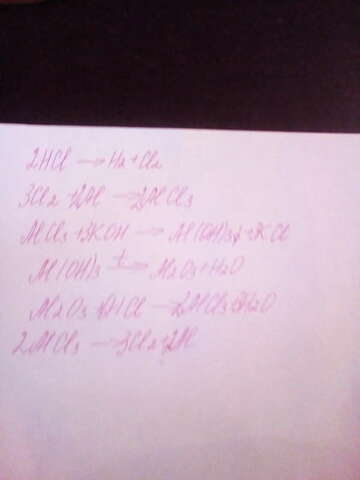 2HCl → H2 + Cl2
3Cl2 + 2Al → 2AlCl3
AlCl3 + 3KOH → Al(OH)3↓ + 3KCl
Al(OH)3 t→ Al2O3 + H2O
Al2O3 + 6HCl → 2AlCl3 + 3H2O
2AlCl3 → 3Cl2 + 2Al